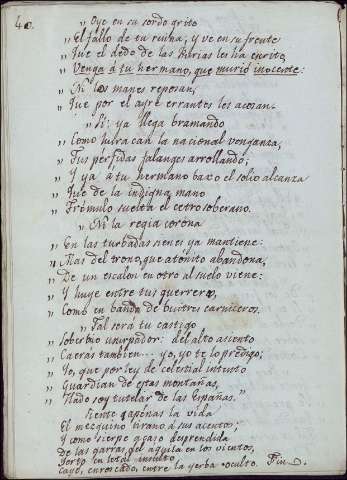 40.
„ Oye en su sordo grito
„ El fallo de tu ruina; y ve en su frente
„ Que el dedo de las Furias les ha escrito,
„ Venga á tu hermano, que murió inocente:
„ Ni los manes reposan,
„ Que por el ayre errantes les acosan.
„ Sí: ya llega bramando
„ Como huracan la nacional venganza,
„ Tus pérfidas falanges arrollando;
„ Y ya á tu hermano baxo el solio alcanza
„ Que de la indigna mano
„ Trémulo suelta el cetro soberano.
„ Ni la regia corona
„ En las turbadas sienes ya mantiene:
„ Mas del trono, que atonito abandona,
„ De un escalon en otro al suelo viene:
„ Y huye entre tus guerreros,
„ Como en banda de buitres carniceros.
„ Tal será tu castigo
„ Soberbio usurpador: del alto asiento
„ Caeras tambien... yo, yo te lo predigo;
„ Yo, que por ley de celestial intento
„ Guardian de estas montañas,
„ Hado soy tutelar de las Españas.”
Siente apenas la vida
El mezquino tirano á sus acentos;
Y como sierpe acaso desprendida
De las garras del aguila en los vientos,
Yerto en letal insulto
Cayó, enroscado, entre la yerba oculto. Fin.